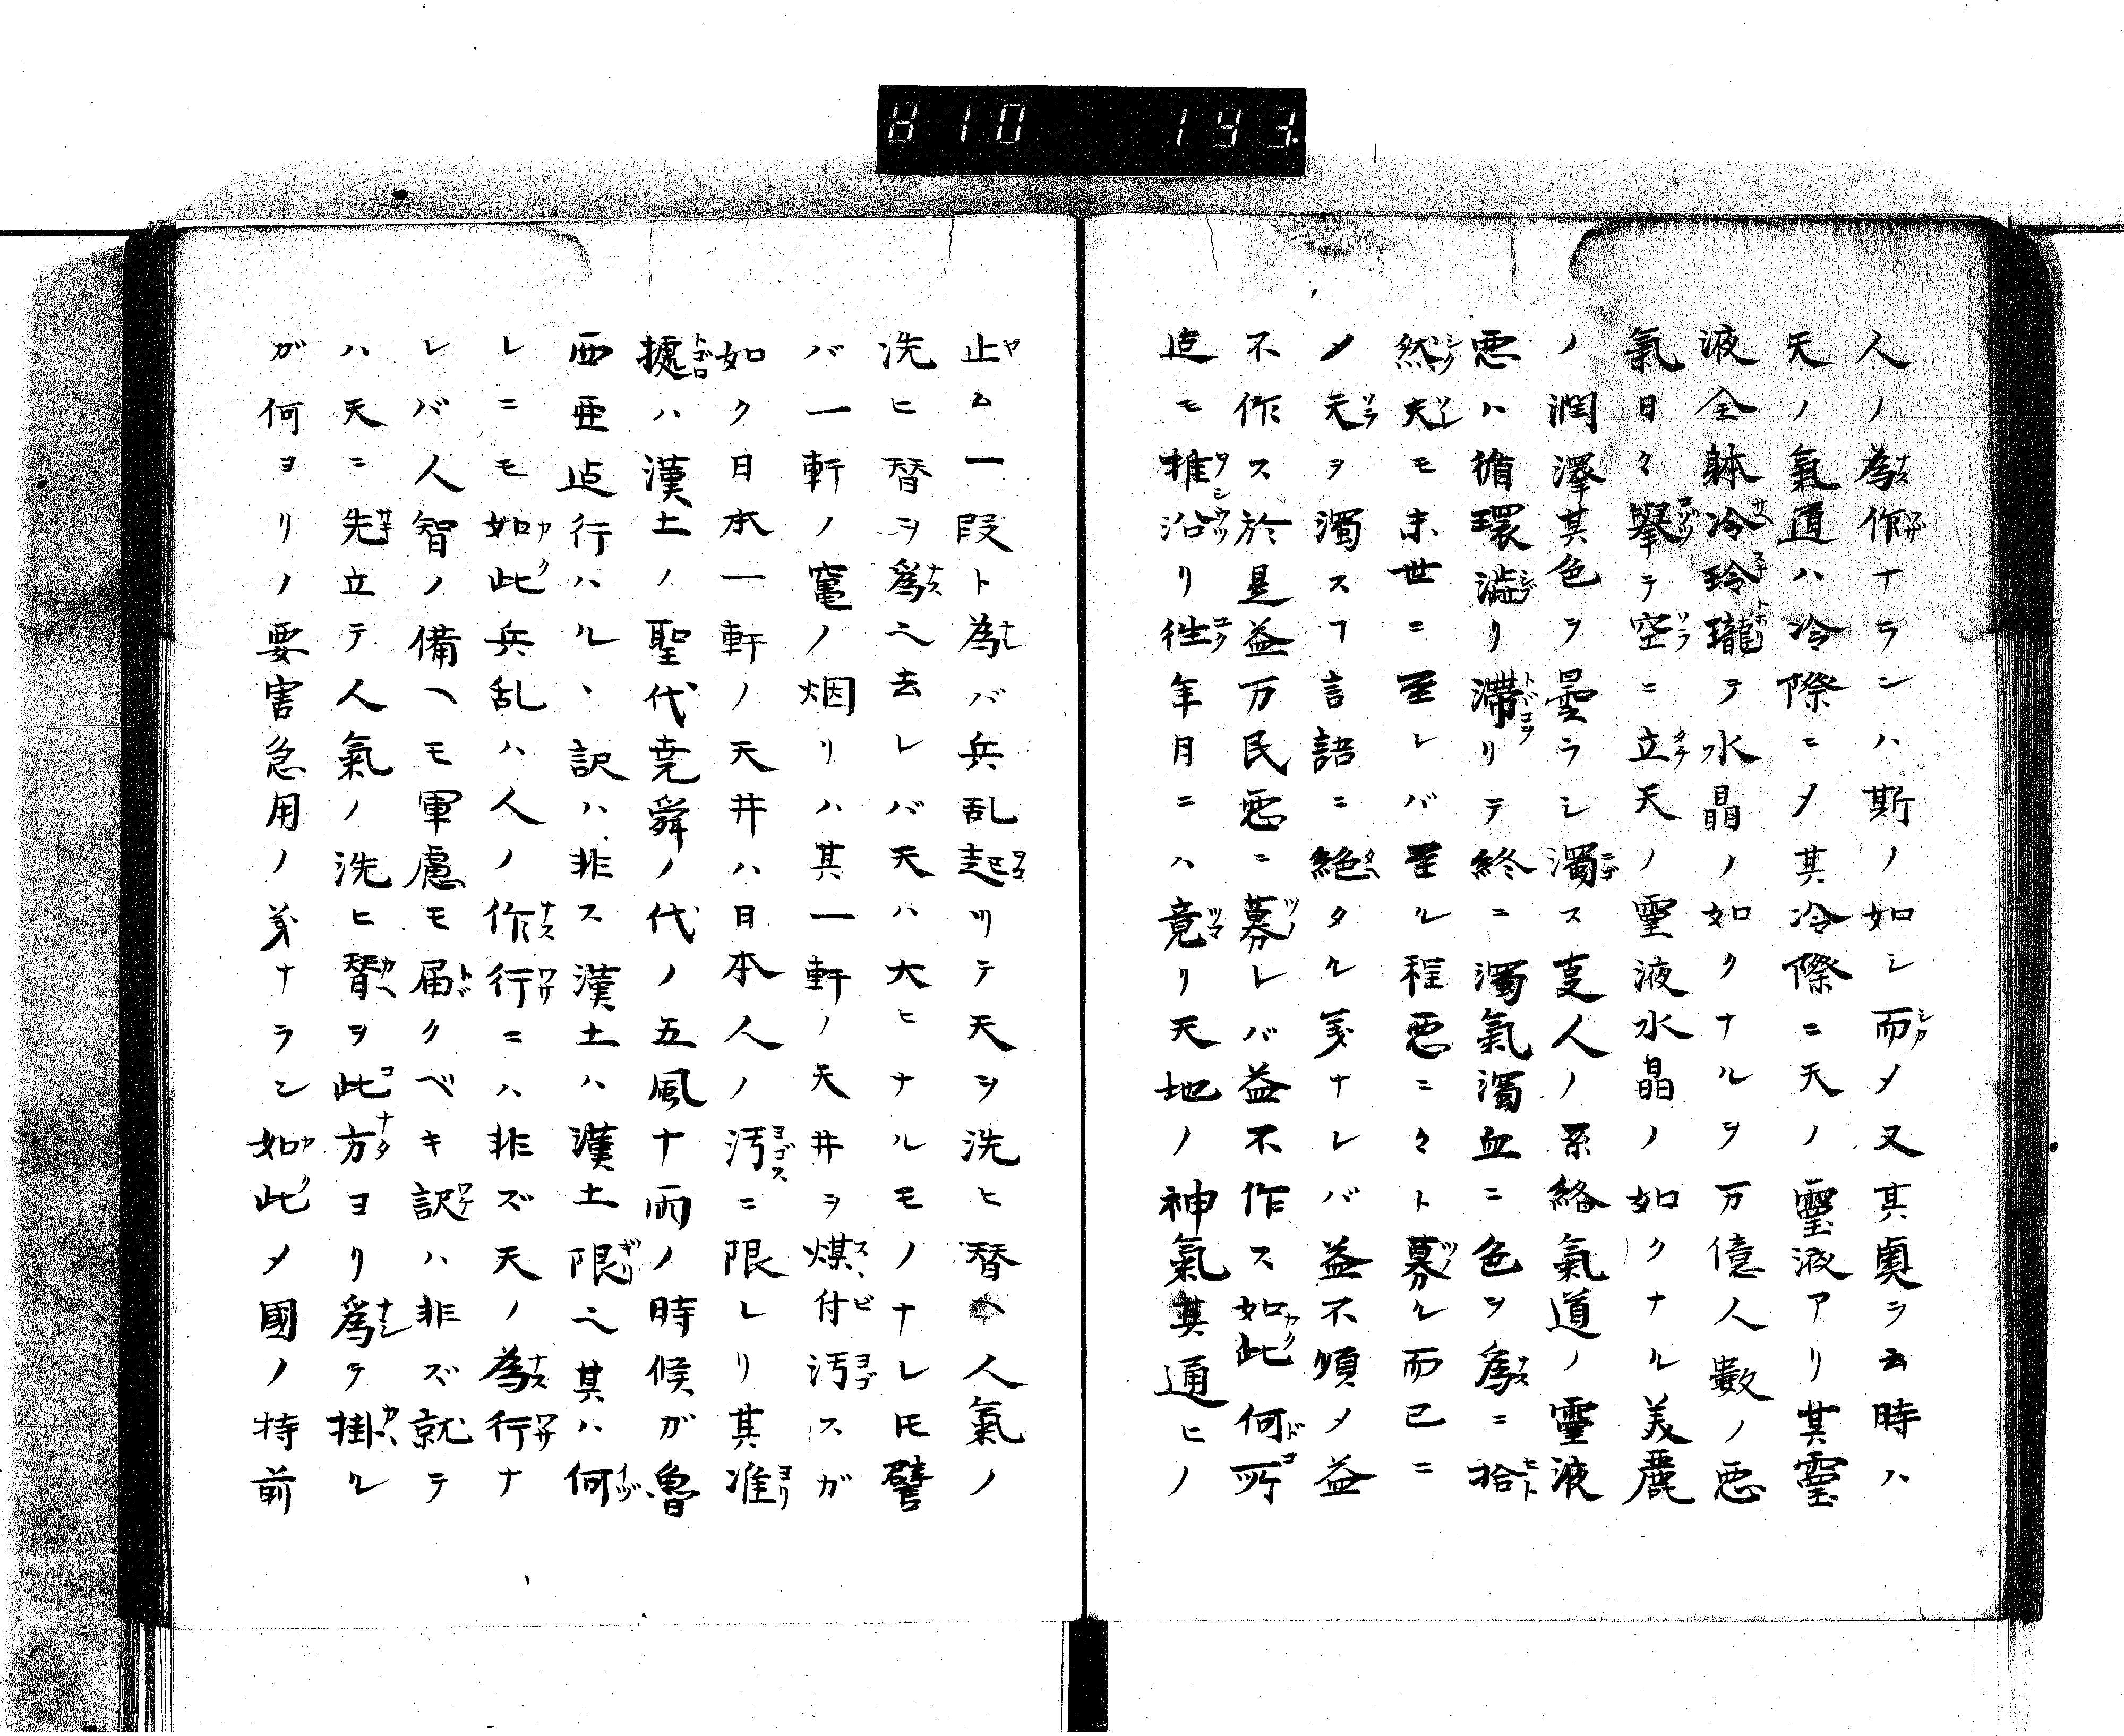 810 193
人ノ為作ナランハ斯ノ如シ而〆又其奥ヲ云時ハ
天ノ氣道ハ冷際ニ〆其冷際ニ天ノ靈液アリ其靈
液全躰冷冷玲瓏テ水晶ノ如クナルヲ万億人數ノ悪
氣日々擧テ空ニ立天ノ靈液水晶ノ如クナル美麗
ノ潤澤其色ヲ曇ラシ濁ス叓人ノ系絡氣道ノ靈液
悪ハ循環澁リ滞リテ終ニ濁氣濁血ニ色ヲ爲ニ拾
然夫モ末世ニ至レバ至ル程悪ニ々ト募ル而已ニ
〆天ヲ濁スヿ言語ニ絶タル美ナレバ益不順〆益
不作ス於是益万民悪ニ募レバ益不作ス如此何所
迠モ推沿リ徃年月ニハ竟リ天地ノ神氣其通ヒノ
止ム一段ト為バ兵乱起リテ天ヲ洗ヒ替ヘ人氣ノ
洗ヒ替ヲ爲ヘ去レバ天ハ大ヒナルモノナレ𪜈譬
バ一軒ノ竃ノ烟リハ其一軒ノ天井ヲ煤付汚スガ
如ク日本一軒ノ天井ハ日本人ノ汚ニ限レリ其准
據ハ漢土ノ聖代尭舜ノ代ノ五風十雨ノ時候ガ魯
西亜迠行ハルヽ訳ハ非ス漢土ハ漢土限ヘ其ハ何
レニモ如此兵乱ハ人ノ作行ニハ非ズ天ノ為行ナ
レバ人智ノ備ヘモ軍慮モ届クベキ訳ハ非ズ就テ
ハ天ニ先立テ人氣ノ洗ヒ替ヲ此方ヨリ爲テ掛ル
ガ何ヨリノ要害急用ノ美ナラン如此〆國ノ持前